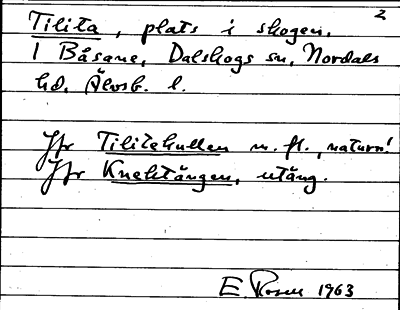 2
Tilita, plats i skogen.
I Båsane, Dalskogs sn, Nordals
hd, Älvsb. l.
Jfr Tilitekullen m. fl., naturn!
Jfr Knektängen, utäng.
E. Rosell 1963